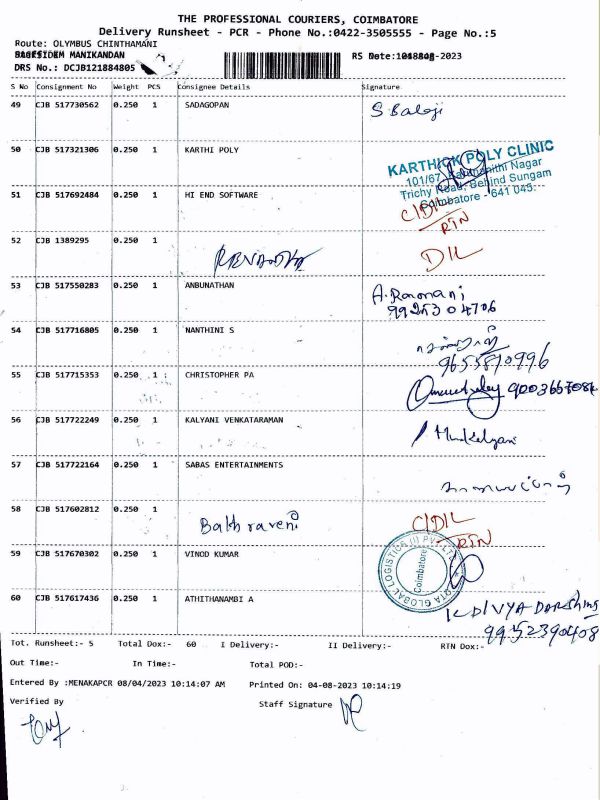 THE PROFESSIONAL COURIERS, COIMBATORE
Delivery Runsheet - PCR - Phone No.:0422-3505555 - Page No.:5
Route: OLYMBUS CHINTHAMANI
MANIKANDAN RS -2023
DRS No.: DCJB121884805
S No Consignment No Weight PCS Consignee Details Signature
49 CJB 517730562 0.250 1 SADAGOPAN S. Balaji
50 CJB 517321306 0.250 1 KARTHI POLY
KARTHICK POLY CLINIC
101/67, Nagar
Trichy Road, Behind Sungam
Coimbatore - 641 045.
51 CJB 517692484 0.250 1 HI END SOFTWARE
C/DIL
RTN
52 CJB 1389295 0.250 1
DIL
53 CJB 517550283 0.250 1 ANBUNATHAN A. Ramani
54 CJB 517716805 0.250 1 NANTHINI S
9655810996
55 CJB 517715353 0.250 1 CHRISTOPHER PA
56 CJB 517722249 0.250 1 KALYANI VENKATARAMAN
57 CJB 517722164 0.250 1 SABAS ENTERTAINMENTS
58 CJB 517602812 0.250 1 C/DIL
RTN
59 CJB 517670302 0.250 1 VINOD KUMAR
GLOBAL LOGISTICS (I) PVT. LTD.
Coimbatore
60 CJB 517617436 0.250 1 ATHITHANAMBI A
K DIVYA DARSHINI
9952390408
Tot. Runsheet:- 5 Total Dox:- 60 I Delivery:- II Delivery:- RTN Dox:-
Out Time:- In Time:- Total POD:-
Entered By :MENAKAPCR 08/04/2023 10:14:07 AM Printed On: 04-08-2023 10:14:19
Verified By Staff Signature